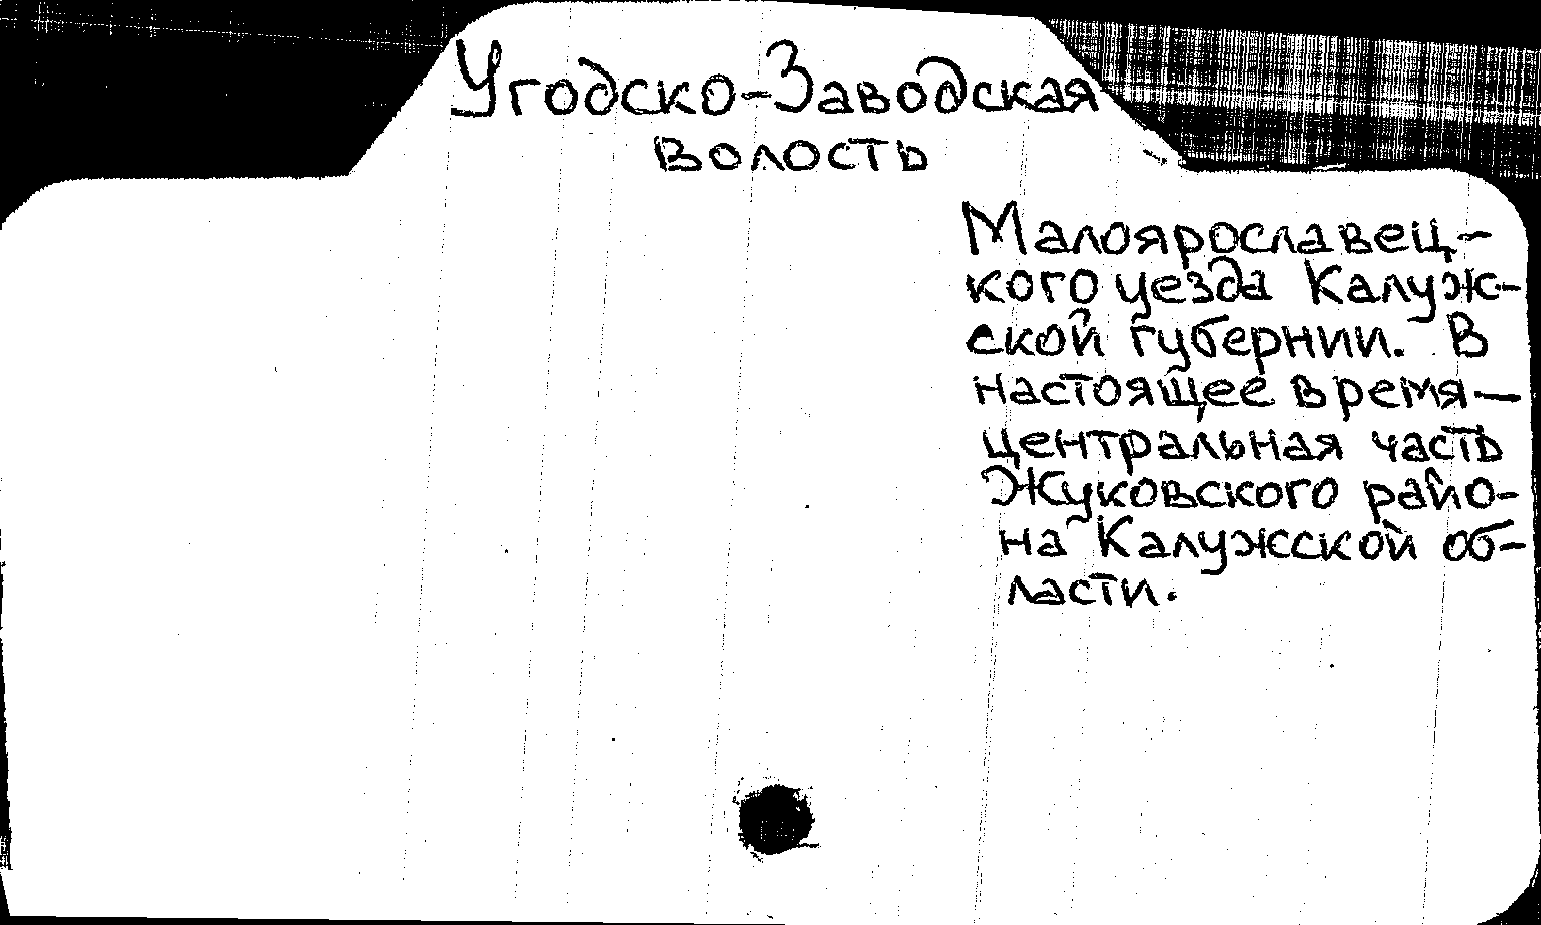 Угодско-Заводская
волость
Малоярославец-
кого уезда Калуж-
ской губернии. В
настоящее время —
центральная часть
Жуковского райо-
на Калужсской об-
ласти.